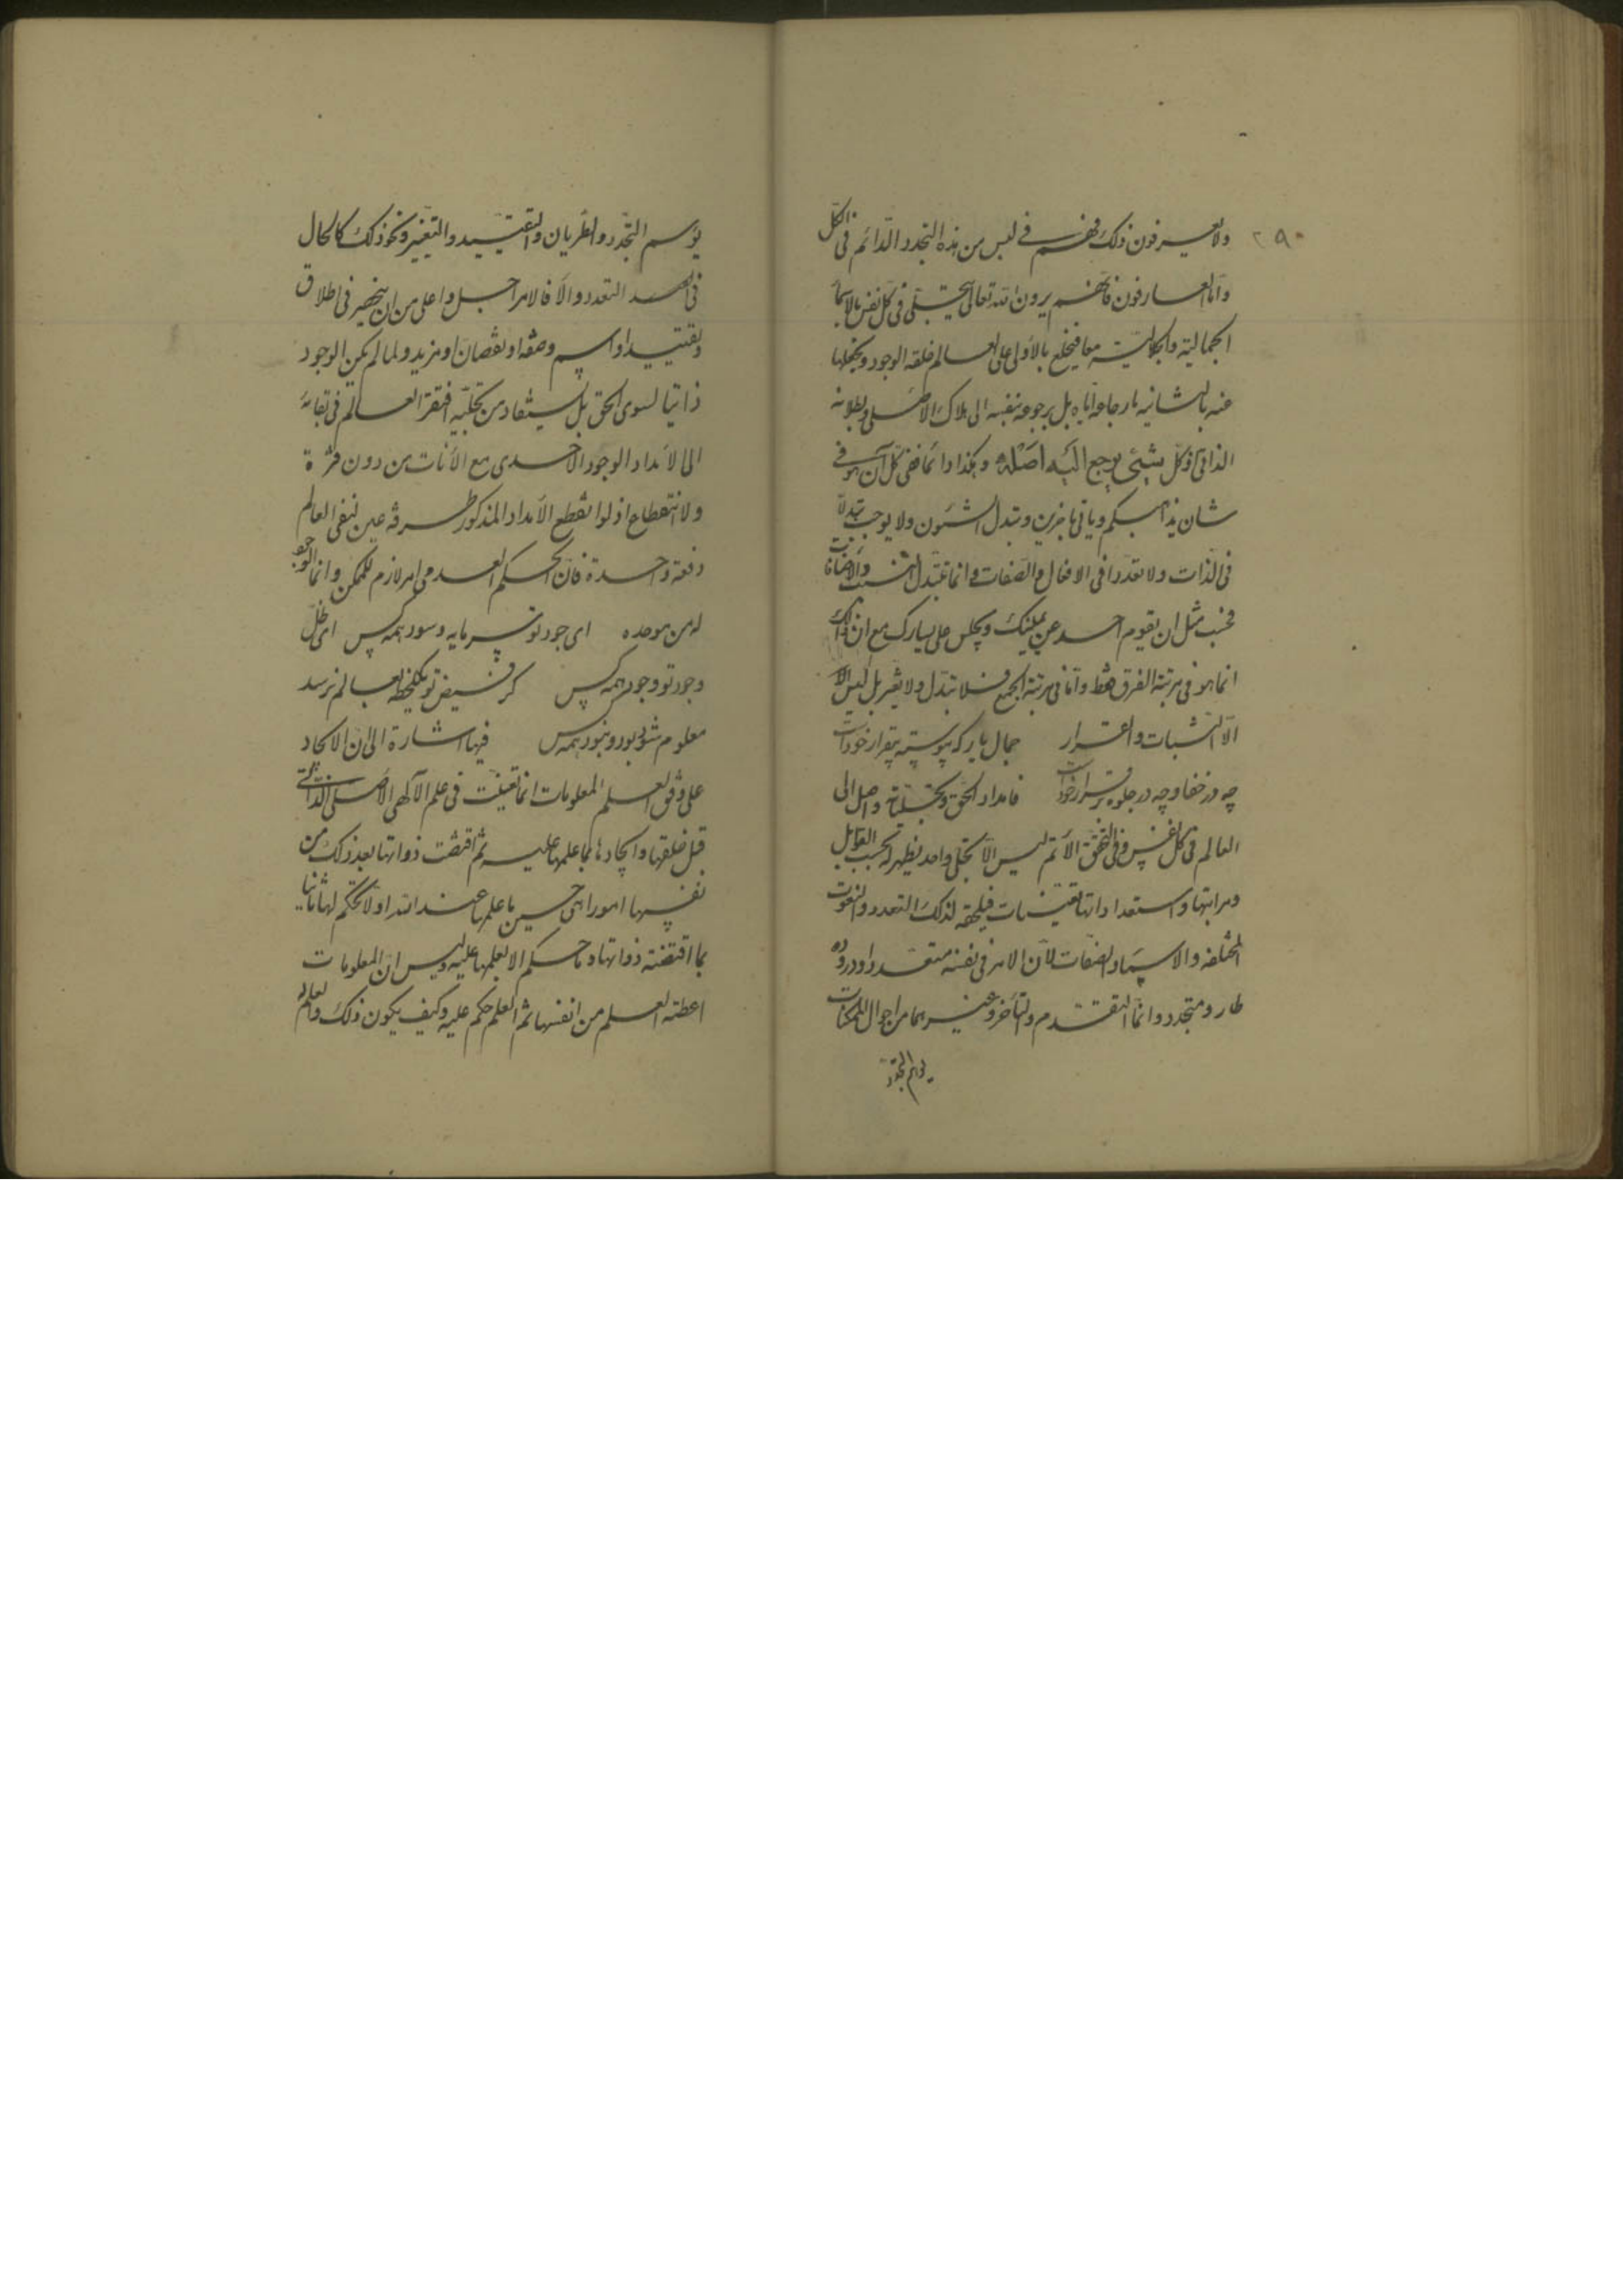 ٢٩٠
ولا يعرفون ذلك فهم في لبس من هذه التجدد الدائم في الكل
واما العارفون فانهم يرون الله تعالى يتجلى في كل نفس بالاسماء
الجمالية والجلالية معا فيخلع بالاولى على العالم خلقة الوجود ويخلعها
عنه بالثانية بارجاعه اياه بل برجوعه بنفسه الى هلاك الاصلى وبطلانه
الذاتى وكل شيئ يرجع اليه اصله وهكذا دائما ففى كل آن هو في
شان يذهبكم وياتى باخرين وتبدل الشئون ولا يوجب تبدلا
فى الذات ولا تعددا فى الافعال والصفات وانما تتبدل النسب والاضافات
فحسب مثل ان يقوم احد عن يمينك ويجلس على يسارك مع ان ذلك
انما هو فى مرتبة الفرق فقط واما فى مرتبة الجمع فلا تبدل ولا تغير بل ليس الا
الا الثبات والقرار جمال يار كه پيوسته بيقرار خوداست
چه در خفا وچه در جلوه برقرار خوداست فامداد الحق وتجلياته واصل الى
العالم فى كل نفس وفى التحقق الاتم ليس الا تجلى واحد يظهر له بحسب القوابل
ومراتبها واستعداداتها تعينات فيلحقه لذلك التعدد والنعوت
المختلفه والاسماء والصفات لان الامر فى نفسه متعدد او وروده
طار ومتجدد وانما التقدم والتاخر وغيرهما من احوال الممكنات
يوهم التجدد
يوهم التجدد والطريان والتقييد والتغير ونحو ذلك كالحال
فى التعدد والا فالامر اجل واعلى من ان ينحصر فى اطلاق
وتقييد او اسم وصفة او نقصان او مزيد ولما لم يكن الوجود
ذاتيا لسوى الحق بل مستفاد من تجليه افتقر العالم فى بقائه
الى الامداد الوجود الاحدى مع الآنات من دون فترة
ولا انقطاع اذ لو انقطع الامداد المذكور طرفة عين لفنى العالم
دفعة واحدة فان الحكم العدمى امر لازم للممكن وانما الوجود
له من موجده اى جود تو سرمايه وسود همه كس اى ظل
وجود تو وجود همه كس گر فيض تو يكلحظه بعالم نرسد
معلوم شود بود ونبود همه كس فيها اشارة الى ان الايجاد
على وفق العلم المعلومات انما تعينت فى علم الالهى الاصلى الذاتى
قبل خلقها وايجادها بما علمها عليه ثم اقتضت ذواتها بعد ذلك من
نفسها امورا هى حين ما علمها عند الله اولا فحكم لها ثانيا
بما اقتضته ذواتها وما حكم الا بعلمها عليه وليس ان المعلومات
اعطته العلم من انفسها ثم العلم حكم عليه وكيف يكون ذلك والله تعالى